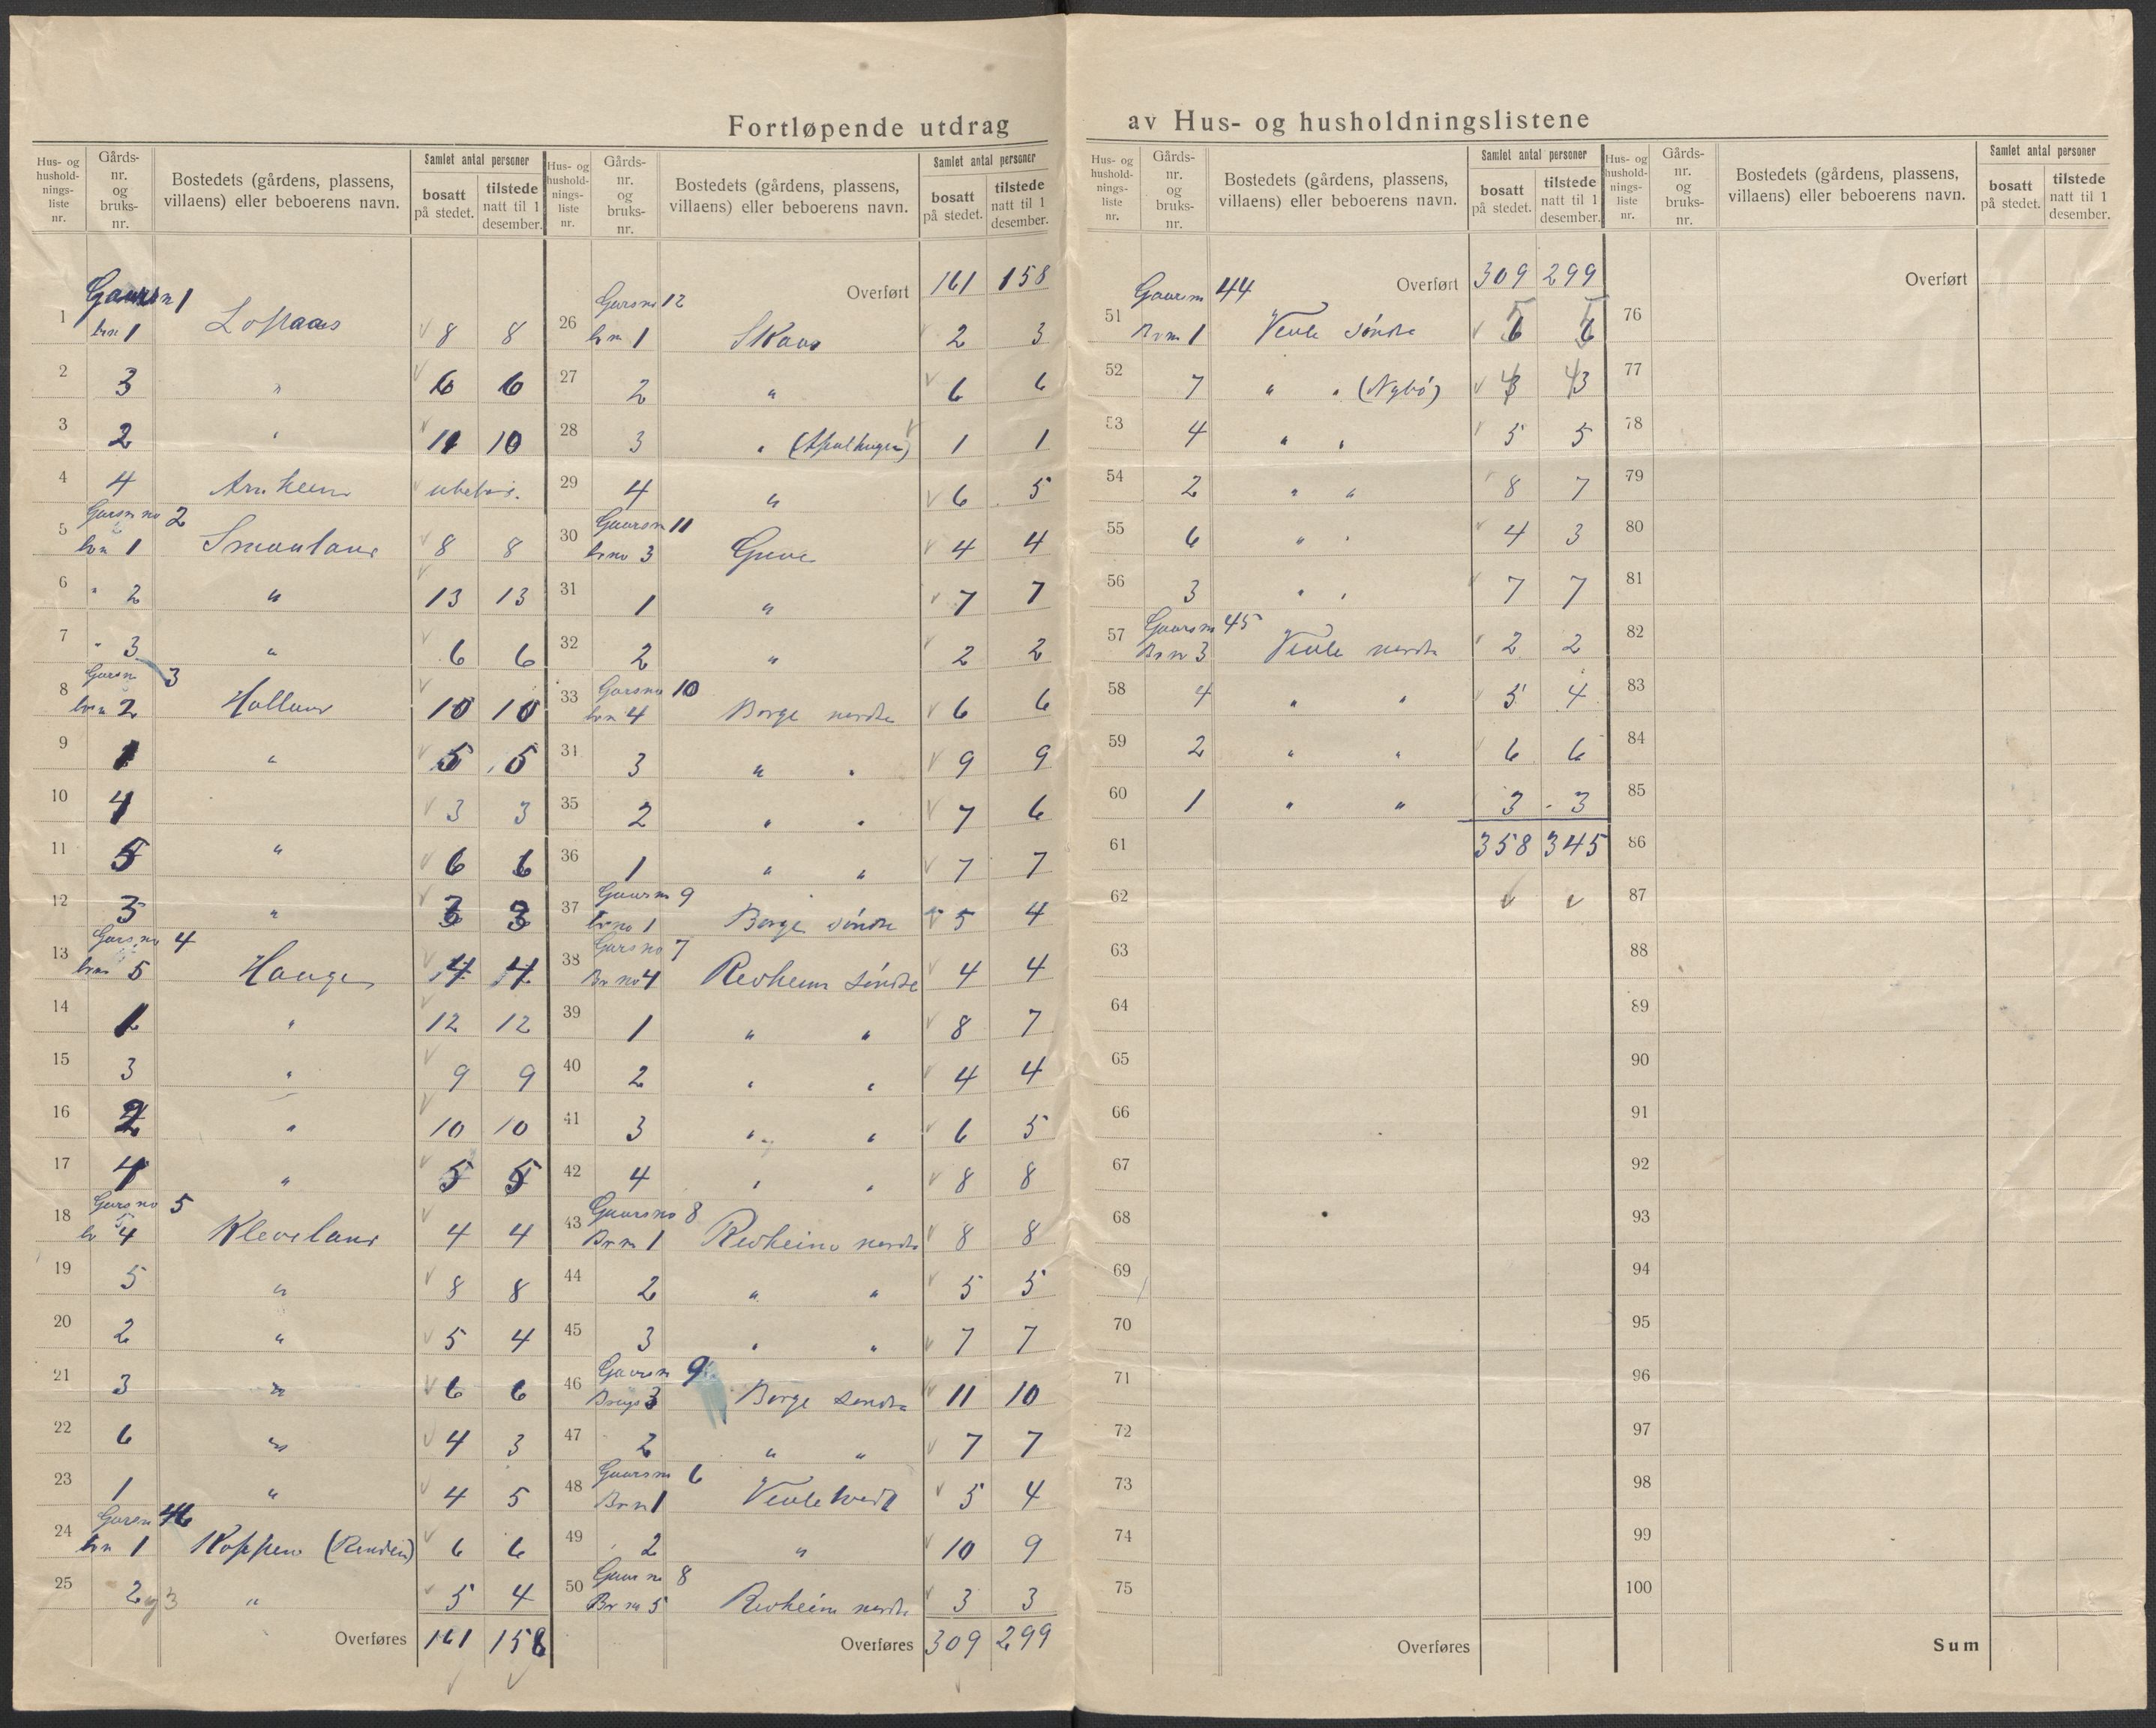 Fortløpende utdrag av Hus- og husholdningslistene
Hus- og husholdnings-liste nr. | Gårds-nr. og bruks-nr. | Bostedets (gårdens, plassens, villaens) eller beboerens navn. | Samlet antal personer bosatt på stedet. | tilstede natt til 1 desember.
Gaarsn 1
1 brn 1 Lofraas 8 8
2 3 " 6 6
3 2 " 11 10
4 4 Arnheim ubebos.
Garsn no 2
5 brn 1 Smaulans 8 8
6 " 2 " 13 13
7 " 3 " 6 6
Garsn 3
8 brn 2 Hallans 10 10
9 1 " 5 5
10 4 3 3
11 5 " 6 6
12 3 " 3 3
Garsno 4
13 brn 5 Hauge 4 4
14 1 " 12 12
15 3 " 9 9
16 2 " 10 10
17 4 " 5 5
Garsno 5
18 br 4 Klevelans 4 4
19 5 " 8 8
20 2 " 5 4
21 3 " 6 6
22 6 " 4 3
23 1 " 4 5
Garsn 46
24 brn 1 Koppen 6 6
25 2 og 3 " 5 4
Overføres 161 158
Hus- og husholdnings-liste nr. | Gårds-nr. og bruks-nr. | Bostedets (gårdens, plassens, villaens) eller beboerens navn. | Samlet antal personer bosatt på stedet. | tilstede natt til 1 desember.
Overført 161 158
Garsno 12
26 brn 1 Skaar 2 3
27 2 " 6 6
28 3 " 1 1
29 4 " 6 5
Gaarsn 11
30 brno 3 Grove 4 4
31 1 " 7 7
32 2 " 2 2
Garsno 10
33 brn 4 Borge nordre 6 6
34 3 " " 9 9
35 2 " " 7 6
36 1 " " 7 7
Gaarsn 9
37 brno 1 Borge søndre 5 4
Garsno 7
38 Brno 4 Revheim søndre 4 4
39 1 " " 8 7
40 2 " " 4 4
41 3 " " 6 5
42 4 " " 8 8
Gaarsno 8
43 Brn 1 Revheim nordre 8 8
44 2 " " 5 5
45 3 " " 7 7
Gaarsn 9
46 3 Borge søndre 11 10
47 2 " " 7 7
Gaarsno 6
48 Brn 1 5 4
49 2 " 10 9
Gaarno 8
50 Brn 5 Revheim nordre 3 3
Overføres 309 299
Hus- og husholdnings-liste nr. | Gårds-nr. og bruks-nr. | Bostedets (gårdens, plassens, villaens) eller beboerens navn. | Samlet antal personer bosatt på stedet. | tilstede natt til 1 desember.
Overført 309 299
Gaarsn 44
5 5
51 Brn 1 Veule søndre 6 6
52 7 " " (Nybø) 4 3 4 3
53 4 " " 5 5
54 2 " " 8 7
55 6 " " 4 3
56 3 " " 7 7
Gaarsn 45
57 Brn 3 Veule nordre 2 2
58 4 " " 5 4
59 2 " " 6 6
60 1 " " 3 - 3
61 358 345
62
63
64
65
66
67
68
69
70
71
72
73
74
75
Overføres
Hus- og husholdnings-liste nr. | Gårds-nr. og bruks-nr. | Bostedets (gårdens, plassens, villaens) eller beboerens navn. | Samlet antal personer bosatt på stedet. | tilstede natt til 1 desember.
Overført
76
77
78
79
80
81
82
83
84
85
86
87
88
89
90
91
92
93
94
95
96
97
98
99
100
Sum